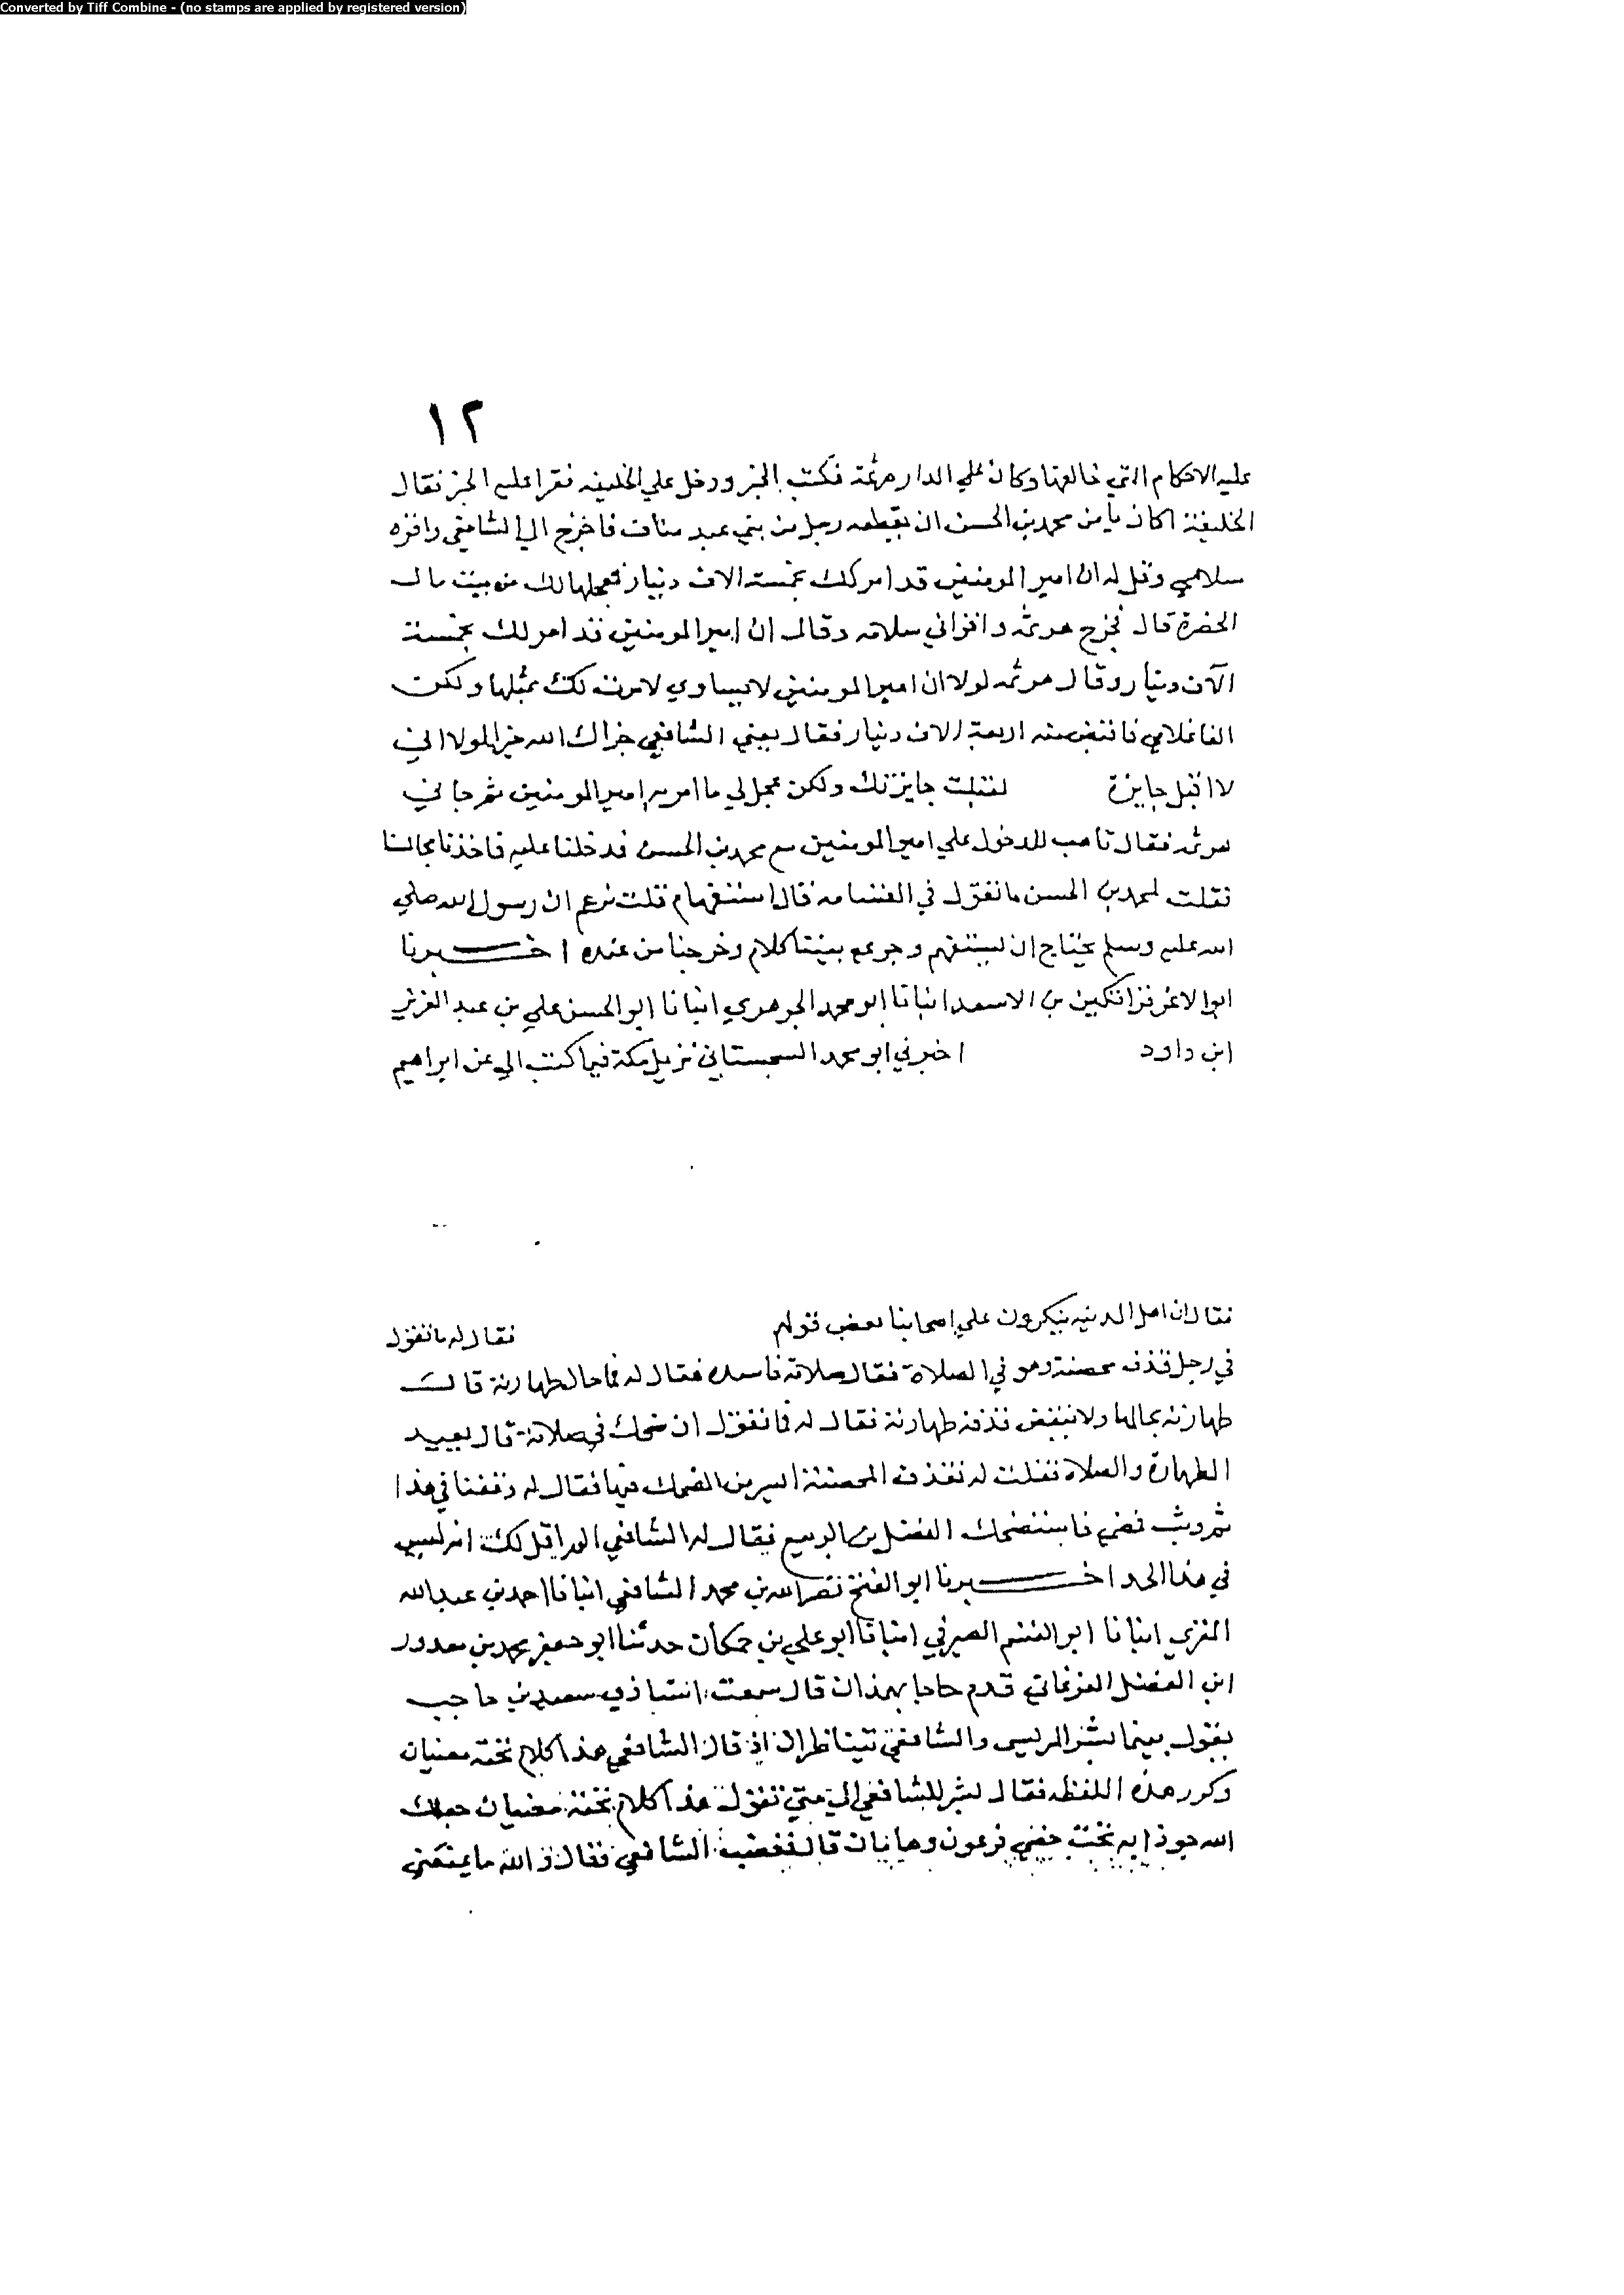 Converted by Tiff Combine - (no stamps are applied by registered version)
١٢
عليه الاحكام التي خالفها وكان علي الدار هرثمة فكتب الخبر ودخل علي الخليفه فقرا عليه الخبر فقال
الخليفة اكان يأمن محمد بن الحسن ان يقطعه رجل من بني عبد مناف فاخرج الي الشافعي واقره
سلامي وقل له ان امير المومنين قد امر لك بخمسة الاف دينار نعجلها لك من بيت مال
الحضرة قال فخرج هرثمه واقراني سلامه وقال ان امير المومنين قد امر لك بخمسة
الآف دينار وقال هرثمه لولا ان امير المومنين لا يساوي لامرت لك بمثلها ولكن
الفا غلامي فاقبض منه اربعة الاف دينار فقال يعني الشافعي جزاك الله خيرا لولا اني
لا اقبل جايزة لقبلت جايزتك ولكن عجل لي ما امر به امير المومنين ثم جاني
هرثمه فقال تاهب للدخول علي امير المومنين مع محمد بن الحسن فدخلنا عليه فاخذنا مجالسنا
فقلت لمحمد بن الحسن ما تقول في القسامه قال استفهام قلت تزعم ان رسول الله صلي
الله عليه وسلم يحتاج ان يستفهم وجري بيننا كلام وخرجنا من عنده اخبرنا
ابو الاعز قراتكين بن الاسعد انبانا ابو محمد الجوهري انبانا ابو الحسن علي بن عبد العزيز
ابن داود اخبرني ابو محمد السجستاني نزيل مكة فيما كتب الي عن ابراهيم
فقال ان اهل المدينه ينكرون علي اصحابنا بعض قولهم فقال له ما تقول
في رجل قذف محصنة وهو في الصلاة فقال صلاته فاسده فقال له فما حال طهارته قال
طهارته بحالها ولا ينقض قذفه طهارته فقال له فما تقول ان ضحك في صلاته قال يعيد
الطهارة والصلاه فقلت له فقذف المحصنة ايسر من الضحك فيها فقال له وقفنا في هذا
ثم وثب فمضي فاستضحك الفضل بن الربيع فقال له الشافعي الم اقل لك انه ليس
في هذا الحد اخبرنا ابو الفتح نصر الله بن محمد الشافعي انبانا احمد بن عبد الله
انبانا ابو القسم الصيرفي انبانا ابو علي بن حمكان حدثنا ابو جعفر محمد بن
ابن الفضل الفرغاني قدم حاجا بهمذان قال سمعت استاذي سعيد بن حاجب
يقول بينما بشر المريسي والشافعي يتناظران اذ قال الشافعي هذا كلام تحته معنيان
وكرر هذه اللفظه فقال بشر للشافعي الي متي تقول هذا كلام تحته معنيان جعلك
الله تحت فرعون وهامان قال فغضب الشافعي فقال والله ما يمنعني